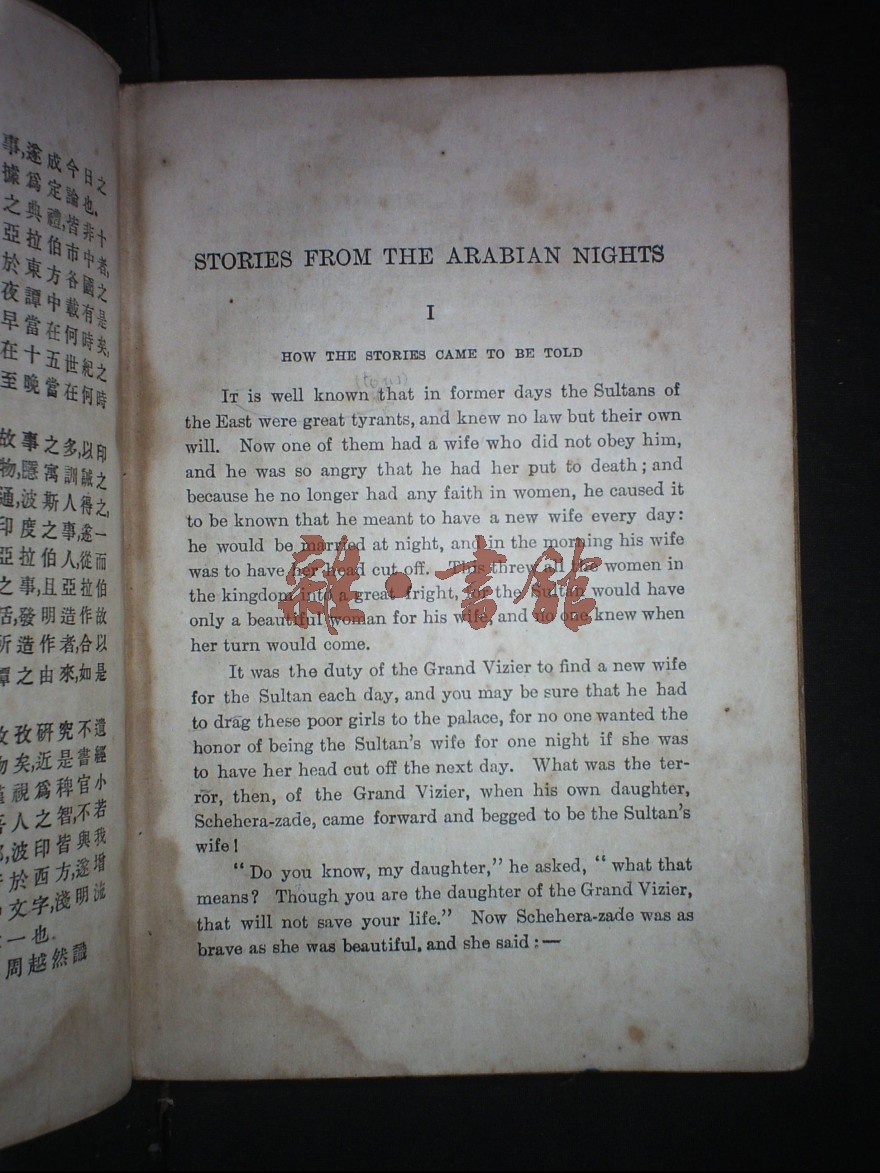 事,遂成今日之
據爲定論也.
之典禮,皆非十
亞拉伯市中者,
於東方各國之
夜譚中載有是
早當在何時矣,
在十五世紀之
至晚當在何時
故事之多,以印
物,隱寓訓誡之
通,波斯人得之,
印度之事,遂一
亞拉伯人,從而
之事,且亞拉伯
活,發明造作故
所造作者,合以
譚之由來,如是
孜研究不遺
矣,近是書經
視爲稗官小
人之智,不若
波印皆與我
於西方,遂增
文字,淺明流
一也.
周越然識
STORIES FROM THE ARABIAN NIGHTS
I
HOW THE STORIES CAME TO BE TOLD
IT is well known that in former days the Sultans of
the East were great tyrants, and knew no law but their own
will. Now one of them had a wife who did not obey him,
and he was so angry that he had her put to death; and
because he no longer had any faith in women, he caused it
to be known that he meant to have a new wife every day:
he would be married at night, and in the morning his wife
was to have her head cut off. This threw all the women in
the kingdom into a great fright, for the Sultan would have
only a beautiful woman for his wife, and no one knew when
her turn would come.
It was the duty of the Grand Vizier to find a new wife
for the Sultan each day, and you may be sure that he had
to drag these poor girls to the palace, for no one wanted the
honor of being the Sultan's wife for one night if she was
to have her head cut off the next day. What was the ter-
ror, then, of the Grand Vizier, when his own daughter,
Schehera-zade, came forward and begged to be the Sultan's
wife!
"Do you know, my daughter," he asked, "what that
means? Though you are the daughter of the Grand Vizier,
that will not save your life." Now Schehera-zade was as
brave as she was beautiful, and she said:—
雜·書館